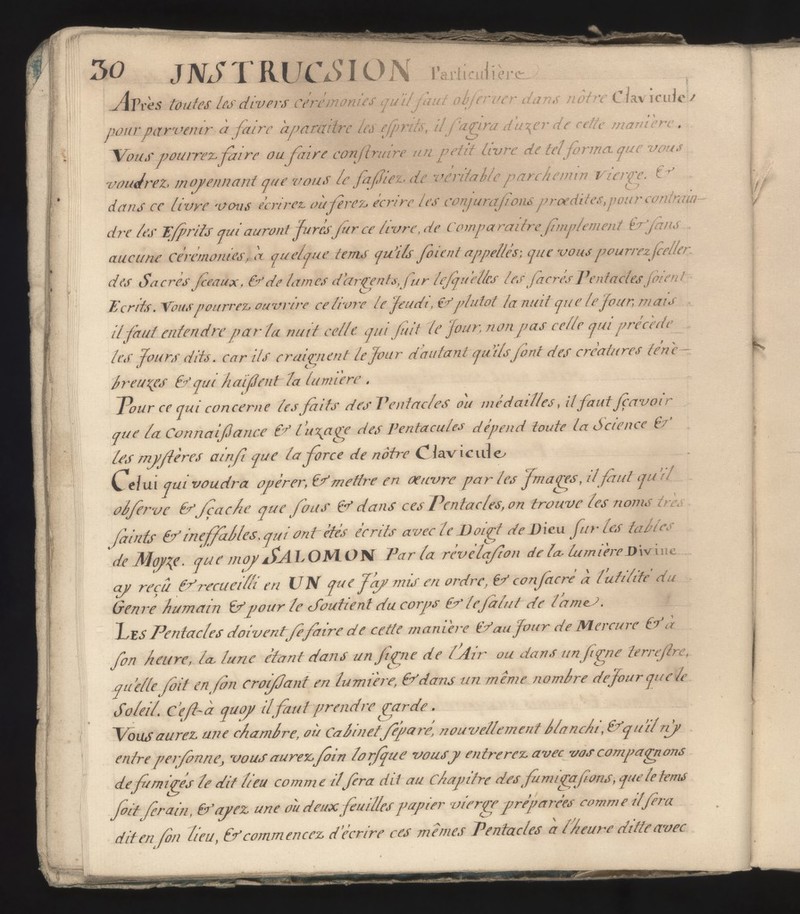 30 INSTRUCSION Particulière
APrès toutes les divers cérémonies qu'il faut observer dans nôtre Clavicule,
pour parvenir à faire aparaître les esprits, il s'agira d'uzer de cette manière.
Vous pourrez faire ou faire construire un petit livre de tel forma que vous
voudrez, moyennant que vous le fassiez de véritable parchemin Vierge. &
dans ce livre vous écrirez ou ferez écrire les conjurasions prœdites, pour contrain-
dre les Esprits qui auront Jurés sur ce livre, de Comparaitre simplement & sans
aucune Cérémonies, à quelque tems qu'ils soient appellés; que vous pourrez sceller
des Sacrés sceaux, & de lames d'argents, sur lesqu'elles les sacrés Pentacles soient
Ecrits. Vous pourrez ouvrire ce livre le Jeudi, & plutot la nuit que le Jour, mais
il faut entendre par la nuit celle qui suit le Jour, non pas celle qui précède
les Jours dits. car ils craignent le Jour d'autant qu'ils sont des créatures téné-
breuzes & qui haïssent la lumière.
Pour ce qui concerne les faits des Pentacles ou médailles, il faut sçavoir
que la Connaissance & l'uzage des Pentacules dépend toute la Science &
les mystères ainsi que la force de nôtre Clavicule
Celui qui voudra opérer, & mettre en œuvre par les Images, il faut qu'il
observe & sçache que sous & dans ces Pentacles, on trouve les noms très
saints & ineffables, qui ont étés écrits avec le Doigt de Dieu sur les tables
de Moyze. que moy SALOMON Par la révélasion de la lumière Divine
ay reçû & recueilli en UN que J'ay mis en ordre, & consacré à l'utilité du
Genre humain & pour le Soutient du corps & le salut de l'ame.
LEs Pentacles doivent se faire de cette manière & au Jour de Mercure & à
son heure, la lune étant dans un signe de l'Air ou dans un signe terrestre,
qu'elle soit en son croissant en lumière, & dans un même nombre de Jour que le
Soleil. C'est-à quoy il faut prendre garde.
Vous aurez une chambre, ou Cabinet séparé, nouvellement blanchi, & qu'il n'y
entre personne, vous aurez soin lorsque vous y entrerez avec vos compagnons
de fumigés le dit lieu comme il sera dit au Chapitre des fumigasions, que le tems
soit serain, & ayez une ou deux feuilles papier vierge préparées comme il sera
dit en son lieu, & commencez d'écrire ces mêmes Pentacles à l'heure ditte avec